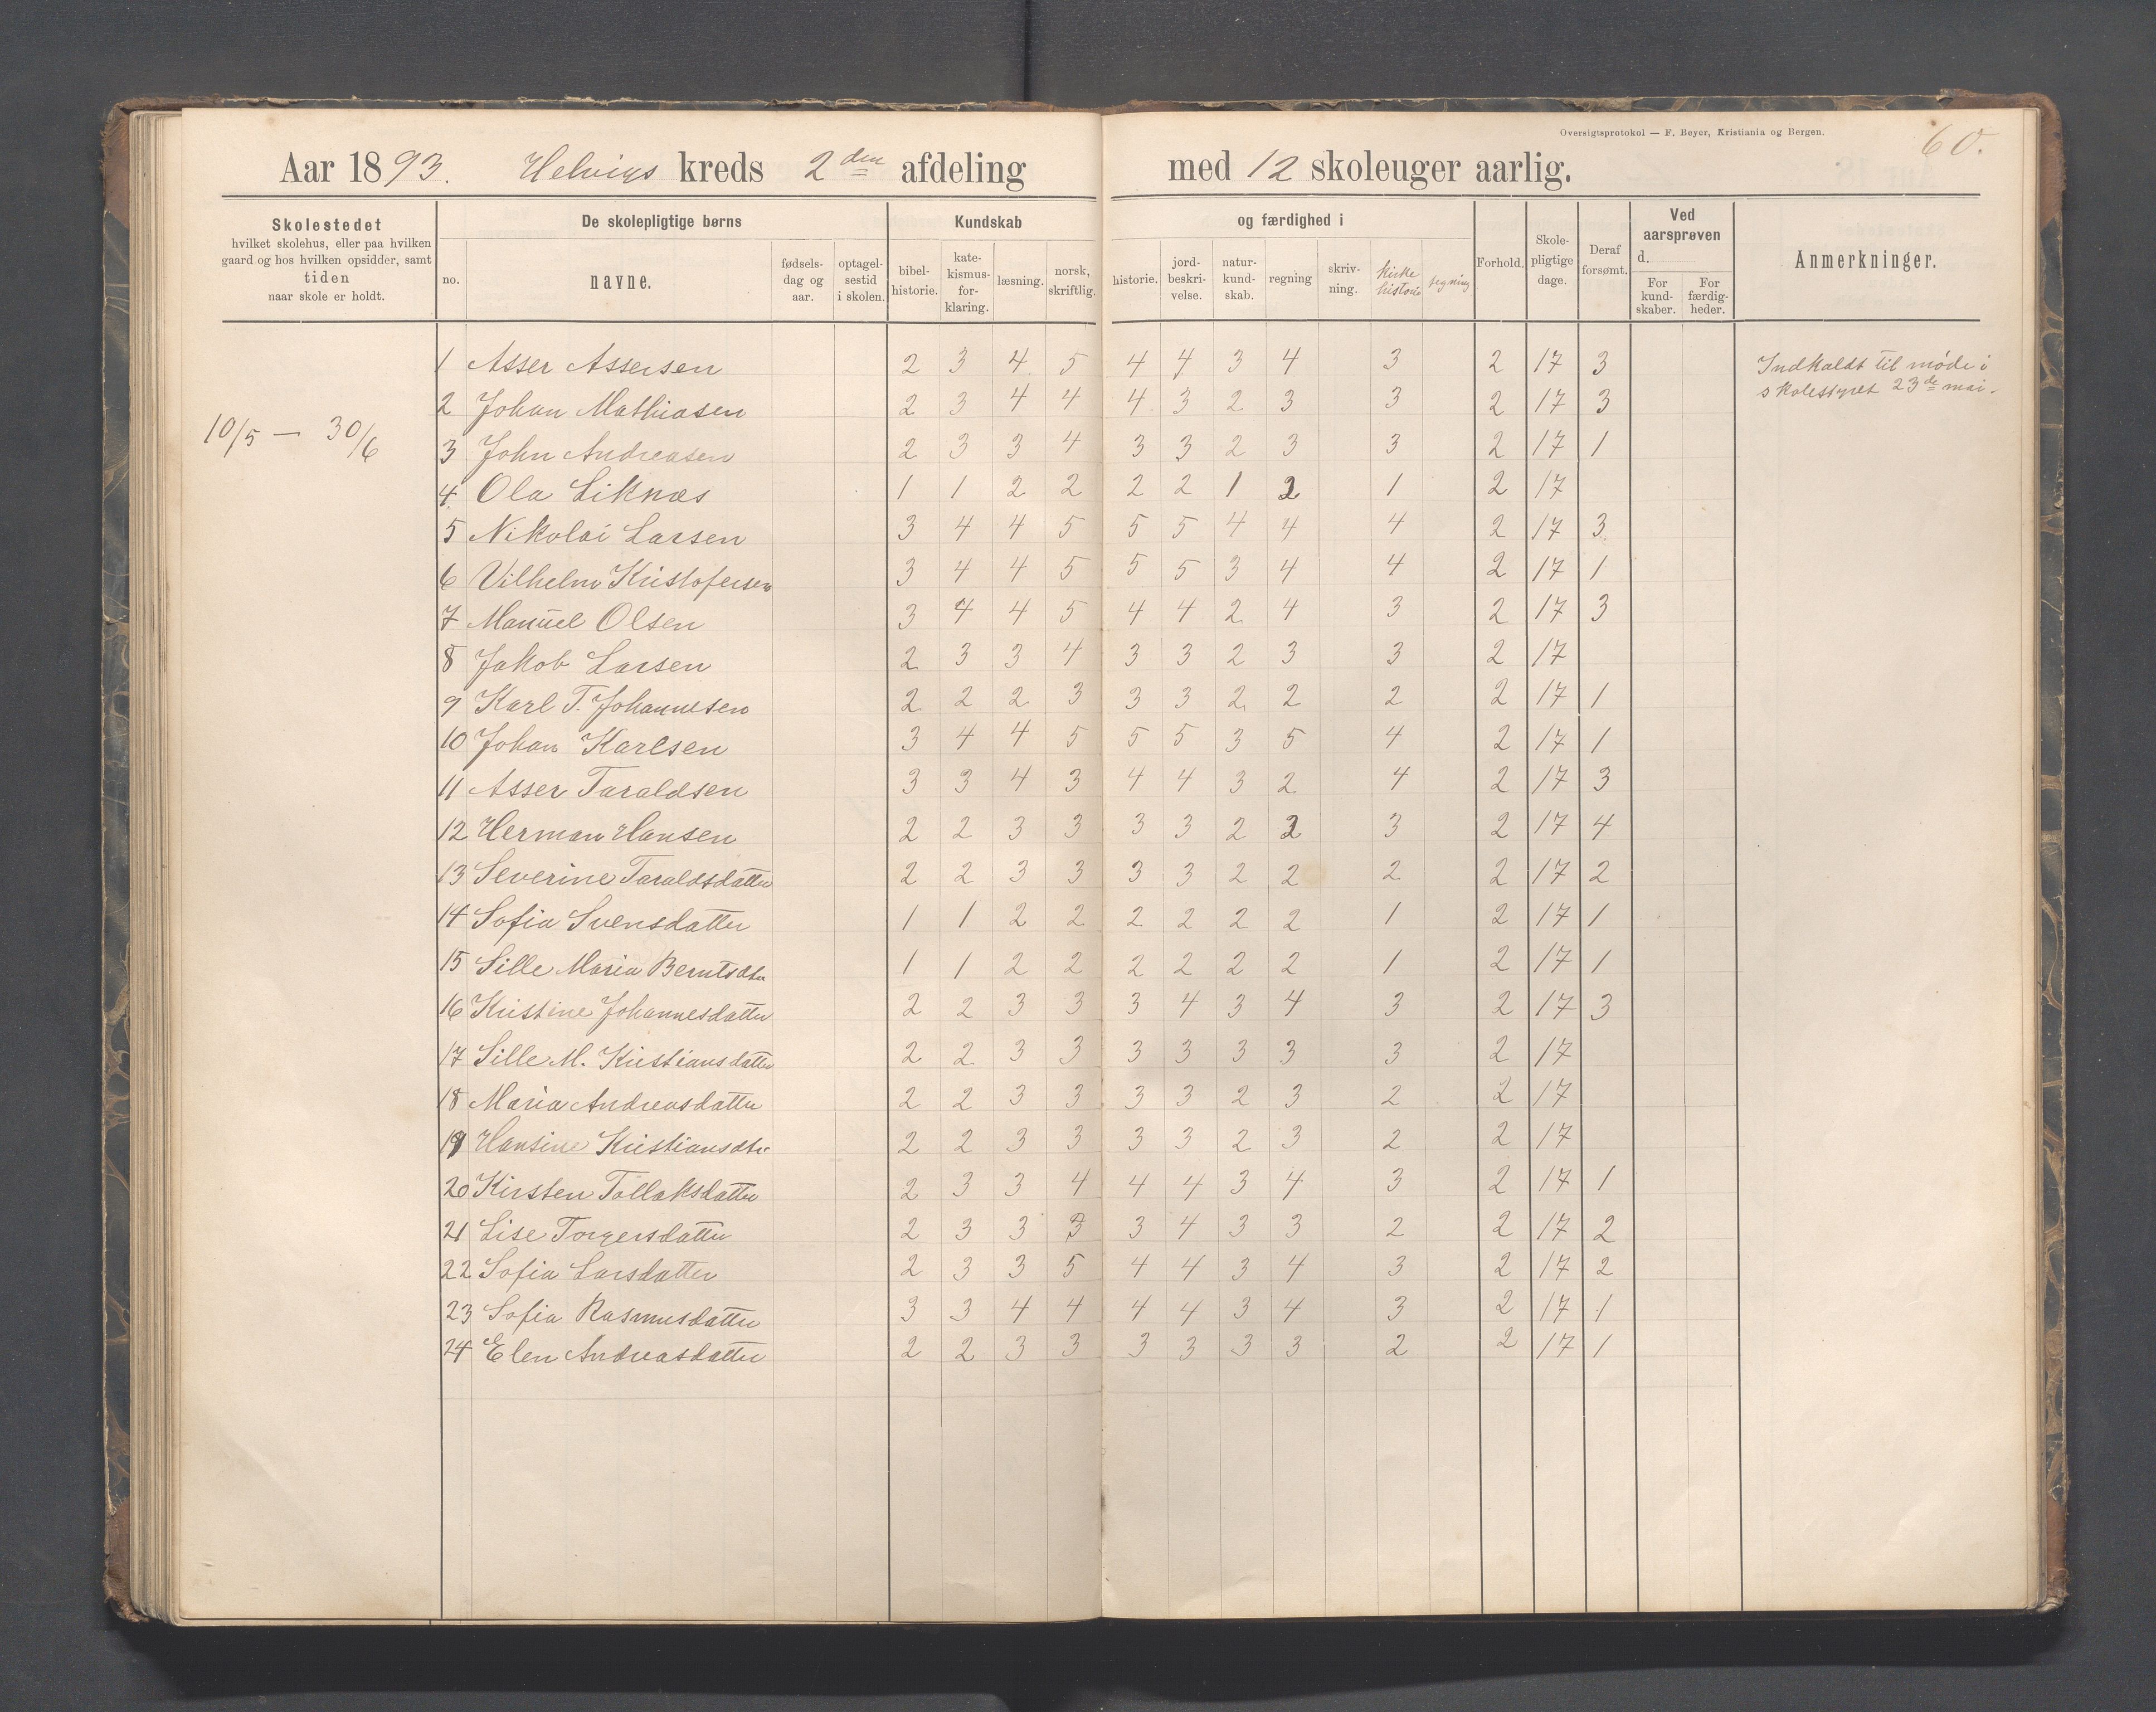 Oversigtsprotokol — F. Beyer, Kristiania og Bergen.
60.
Aar 1893. Helvigs kreds 2den afdeling med 12 skoleuger aarlig.
Skolestedet hvilket skolehus, eller paa hvilken gaard og hos hvilken opsidder, samt tiden naar skole er holdt.
De skolepligtige børns
no. navne. fødsels-dag og aar. optagel-sestid i skolen.
Kundskab og færdighed i
bibel-historie. kate-kismus-for-klaring. læsning. norsk, skriftlig. historie. jord-beskri-velse. natur-kund-skab. regning skriv-ning. kirke historie tegning
Forhold. Skole-pligtige dage. Deraf forsømt.
Ved aarsprøven d.
For kund-skaber. For færdig-heder.
Anmerkninger.
10/5 — 30/6
1 Asser Assersen 2 3 4 5 4 4 3 4 3 2 17 3 Indkaldt til møde i
skolestyret 23de mai.
2 Johan Mathiasen 2 3 4 4 4 3 2 3 3 2 17 3
3 John Andreasen 2 3 3 4 3 3 2 3 3 2 17 1
4. Ola Liknæs 1 1 2 2 2 2 1 2 1 2 17
5 Nikolai Larsen 3 4 4 5 5 5 4 4 4 2 17 3
6 Vilhelm Kristofersen 3 4 4 5 5 5 3 4 4 2 17 1
7 Manuel Olsen 3 4 4 5 4 4 2 4 3 2 17 3
8 Jakob Larsen 2 3 3 4 3 3 2 3 3 2 17
9 Karl T. Johannesen 2 2 2 3 3 3 2 2 2 2 17 1
10 Johan Karlsen 3 4 4 5 5 5 3 5 4 2 17 1
11 Asser Taraldsen 3 3 4 3 4 4 3 2 4 2 17 3
12 Herman Hansen 2 2 3 3 3 3 2 2 3 2 17 4
13 Severine Taraldsdatter 2 2 3 3 3 3 2 2 2 2 17 2
14 Sofia Svensdatter 1 1 2 2 2 2 2 2 1 2 17 1
15 Sille Maria Berntsdtr 1 1 2 2 2 2 2 2 1 2 17 1
16 Kristine Johannesdatter 2 2 3 3 3 4 3 4 3 2 17 3
17 Sille M. Kristiansdatter 2 2 3 3 3 3 3 3 3 2 17
18 Maria Andreasdatter 2 2 3 3 3 3 2 3 2 2 17
19 Hansine Kristiansdtr 2 2 3 3 3 3 2 3 2 2 17
20 Kirsten Tollaksdatter 2 3 3 4 4 4 3 4 3 2 17 1
21 Lise Torgersdatter 2 3 3 3 3 4 3 3 2 2 17 2
22 Sofia Larsdatter 2 3 3 5 4 4 3 4 3 2 17 2
23 Sofia Rasmusdatter 3 3 4 4 4 4 3 4 3 2 17 1
24 Elen Andreasdatter 2 2 3 3 3 3 3 3 2 2 17 1